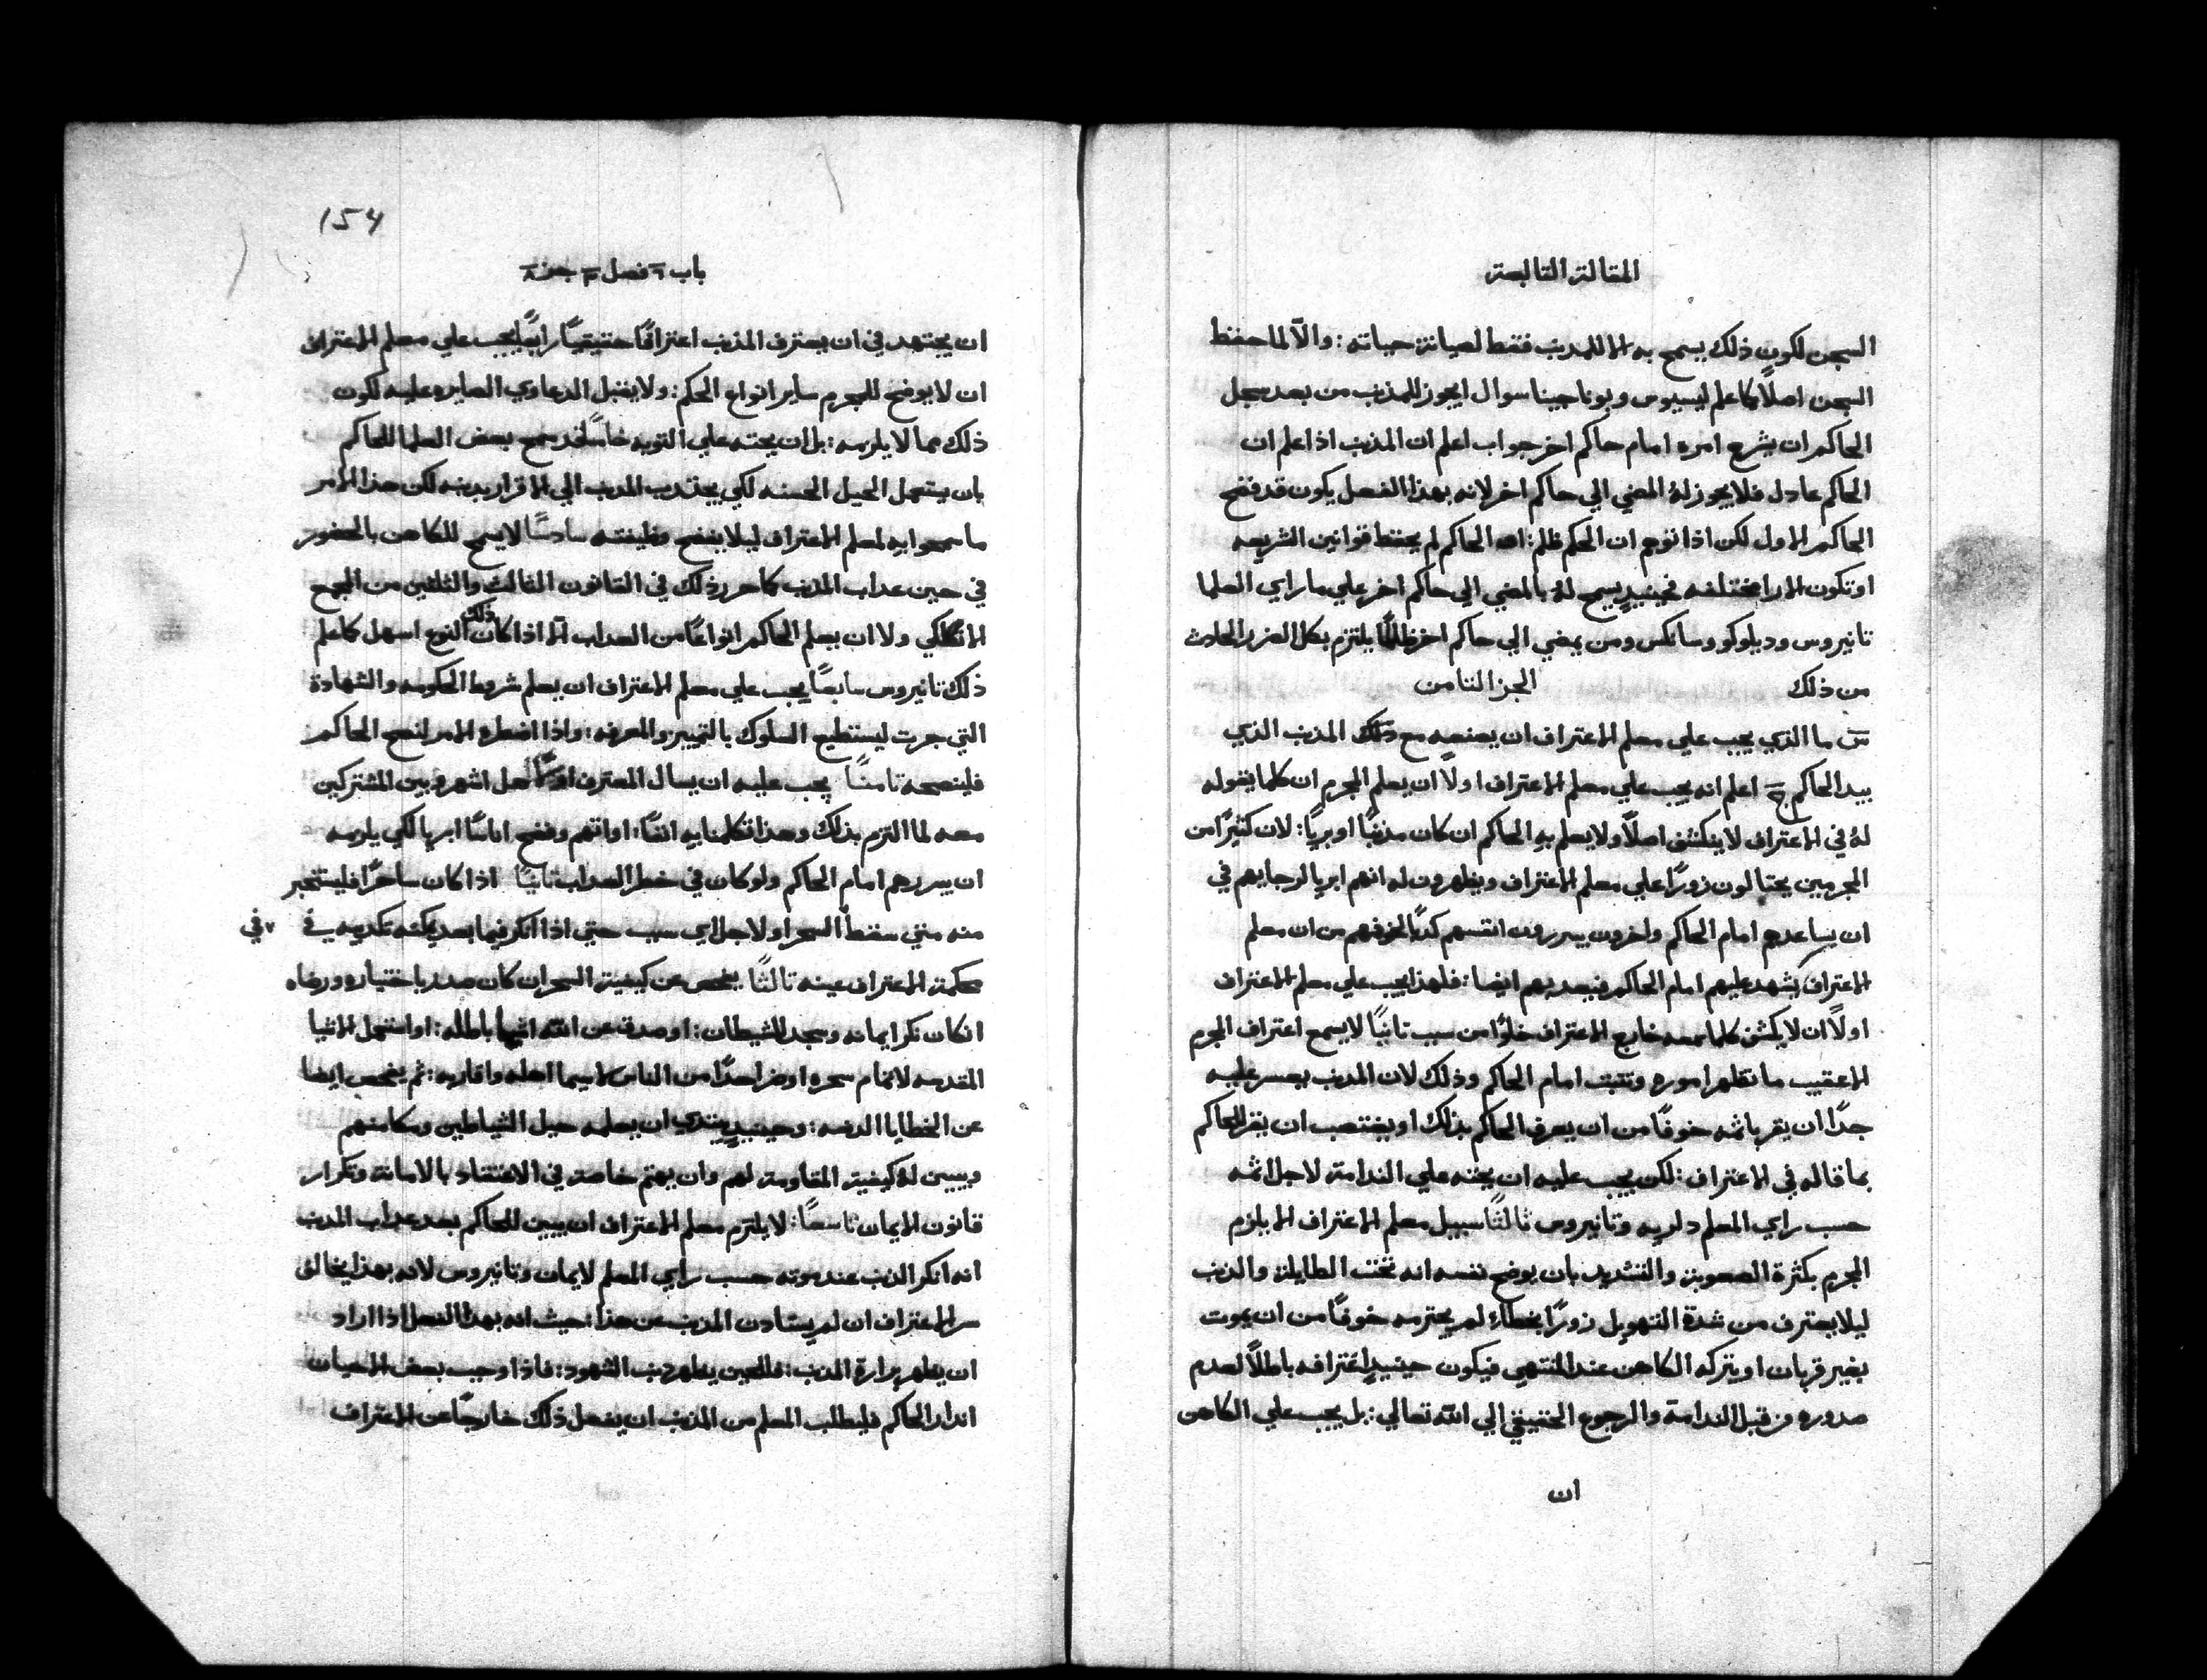 المقالة التالية
السجن لكون ذلك يسمح به للمذنب فقط لصيانة حياته: والا لما حفظ
السجن اصلًا كما علم ليسيوس وبوناجينا سوال ايجوز للمذنب من بعد سجل
الحاكم ان يشرع امره امام حاكم اخر جواب اعلم ان المذنب اذا علم ان
الحاكم عادل فلا يجوز لهُ المضي الي حاكم اخر لانه بهذا الفصل يكون قد فضح
الحاكم الاول لكن اذا توهم ان الحكم ظلم: الحاكم لم يحفظ قوانين الشريعه
او تكون الارا مختلفه فحينيدٍ يسمح لهُ بالمضي الي حاكم اخر علي ما راي العلما
تانيروس وديلوكو وسانكس ومن يمضي الي حاكم اخر ظلمًا يلتزم بكل الضرر الحادث
من ذلك الجز الثامن
س ما الذي يجب علي معلم الاعتراف ان يصنعه مع ذلك المذنب الذي
بيد الحاكم ج اعلم انه يجب علي معلم الاعتراف اولًا ان يعلم المجرم ان كلما يقوله
لهُ في الاعتراف لا ينكشف اصلًا ولا يعلم به الحاكم ان كان مذنبًا او بريًا: لان كثيرًا من
المجرمين يحتالون زورًا علي معلم الاعتراف ويظهرون له انهم ابريا لرجايهم في
ان يساعدهم امام الحاكم واخرون يبررون انفسهم كدبًا لخوفهم من ان معلم
الاعتراف يشهد عليهم امام الحاكم فيعدبهم ايضا: فلهذا يجب علي معلم الاعتراف
اولًا ان لا يكشف كلما سمعه خارج الاعتراف خلوًا من سبب تانيًا لا يسمع اعتراف المجرم
الا عقيب ما تظهر اموره وتثبت امام الحاكم وذلك لان المذنب يعسر عليه
جدًا ان يقر باثمه خوفًا من ان يعرف الحاكم بذلك او يغتصب ان يقر للحاكم
بما قاله في الاعتراف: لكن يجب عليه ان يحثه علي الندامة لاجل اثمه
حسب راي المعلم دلريه وتانيروس ثالثًا سبيل معلم الاعتراف الا يلزم
المجرم بكثرة الصعوبة والتشديد بان يوضح نفسه انه تحت الطايلة والذنب
ليلا يعترف من شدة التهويل زورًا بخطاءٍ لم يجترمه خوفًا من ان يموت
بغير قربان او يتركه الكاهن عند المنتهي فيكون حينيدٍ اعترافه باطلًا لعدم
صدوره من قبل الندامة والرجوع الحقيقي الي الله تعالي: بل يجب علي الكاهن
ان
154
باب ٦ فصل ٣ جز ٨
ان يجتهد في ان يعترف المذنب اعترافًا حقيقيًا رابعًا يجب علي معلم الاعتراف
ان لا يوضح للمجرم ساير انواع الحكم: ولا يقبل الدعاوي الصايره عليه لكون
ذلك مما لا يلزمه: بل ان يحثه علي التوبه خامسًا قد سمح بعض العلما للحاكم
بان يستعمل الحيل الحسنه لكي يجتدب المدنب الي الاقرار بدنبه لكن هذا الامر
ما سمحوا به لمعلم الاعتراف ليلا يفضح وظيفته سادسًا لا يسمح للكاهن بالحضور
في حين عداب المذنب كما حرر ذلك في القانون الثالث والثلثين من المجمع
ولا ان يعلم الحاكم انواعًا من العداب الا اذا كان ذلك النوع اسهل كما علم
ذلك تانيروس سابعًا يجب علي معلم الاعتراف ان يعلم شروط الحكومه والشهادة
التي جرت ليستطيع السلوك بالتمييز والمعرفه: واذا اضطره الامر لنصح الحاكم
فلينصحه تامنًا يجب عليه ان يسال المعترف اولًا هل اشهر وبين المشتركين
معه لما التزم بذلك وهذا تكلمنا به انفًا: او اتهم وفضح اناسًا ابريا لكي يلزمه
ان يبررهم امام الحاكم ولو كان في خطر العداب تانيًا اذا كان ساحرًا فليستخبر
منه متي سقط السحر او لاجل اي سبب حتي اذا انكر فيما بعد يمكنه تكديبه في
محكمة الاعتراف عينه ثالثًا يفحص عن كيفية السحر ان كان صدر باختياره ورضاه
ان كان نكر ايمانه وسجد للشيطان: او صدق عن الله اشيا باطله: او استعمل الاشيا
المقدسه لاتمام سحره او ضر احدًا من الناس لاسيما اهله واقاربه: ثم يفحص ايضا
عن الخطايا الدنسه: وحينيدٍ يبتدي ان يعلمه حيل الشياطين ومكامنهم
ويبين لهُ كيفية المقاومة لهم وان يهتم خاصة في الاعتقاد بالامانة وتكرار
قانون الايمان تاسعًا: لا يلتزم معلم الاعتراف ان يبين للحاكم بعد عداب المدنب
انه انكر الذنب عند موته حسب راي المعلم لايمان وتانيروس لانه بهذا يخالف
سر الاعتراف ان لم يستادن المذنب عن هذا: حيث انه بهذا الفعل اذا اراد
ان يظهر برارة المذنب: فللحين يظهر ذنب الشهود: فاذا وجب بعض الاحيان
اندار الحاكم فليطلب المعلم من المذنب ان يفعل ذلك خارجًا عن الاعتراف